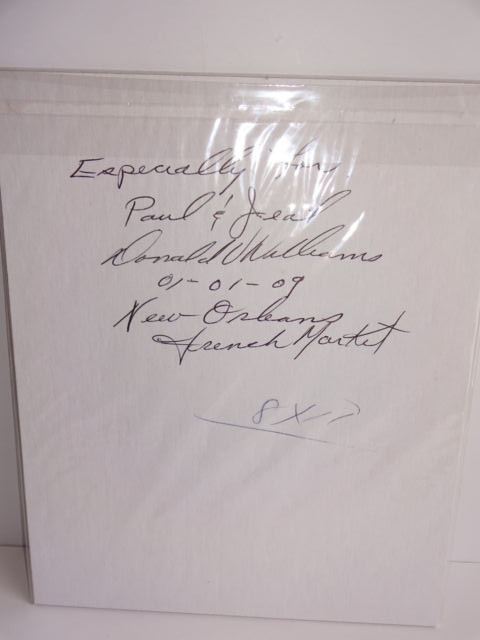 Especially for
Paul & Jean
Donald W Williams
01-01-09
New Orleans
French Market
8X17